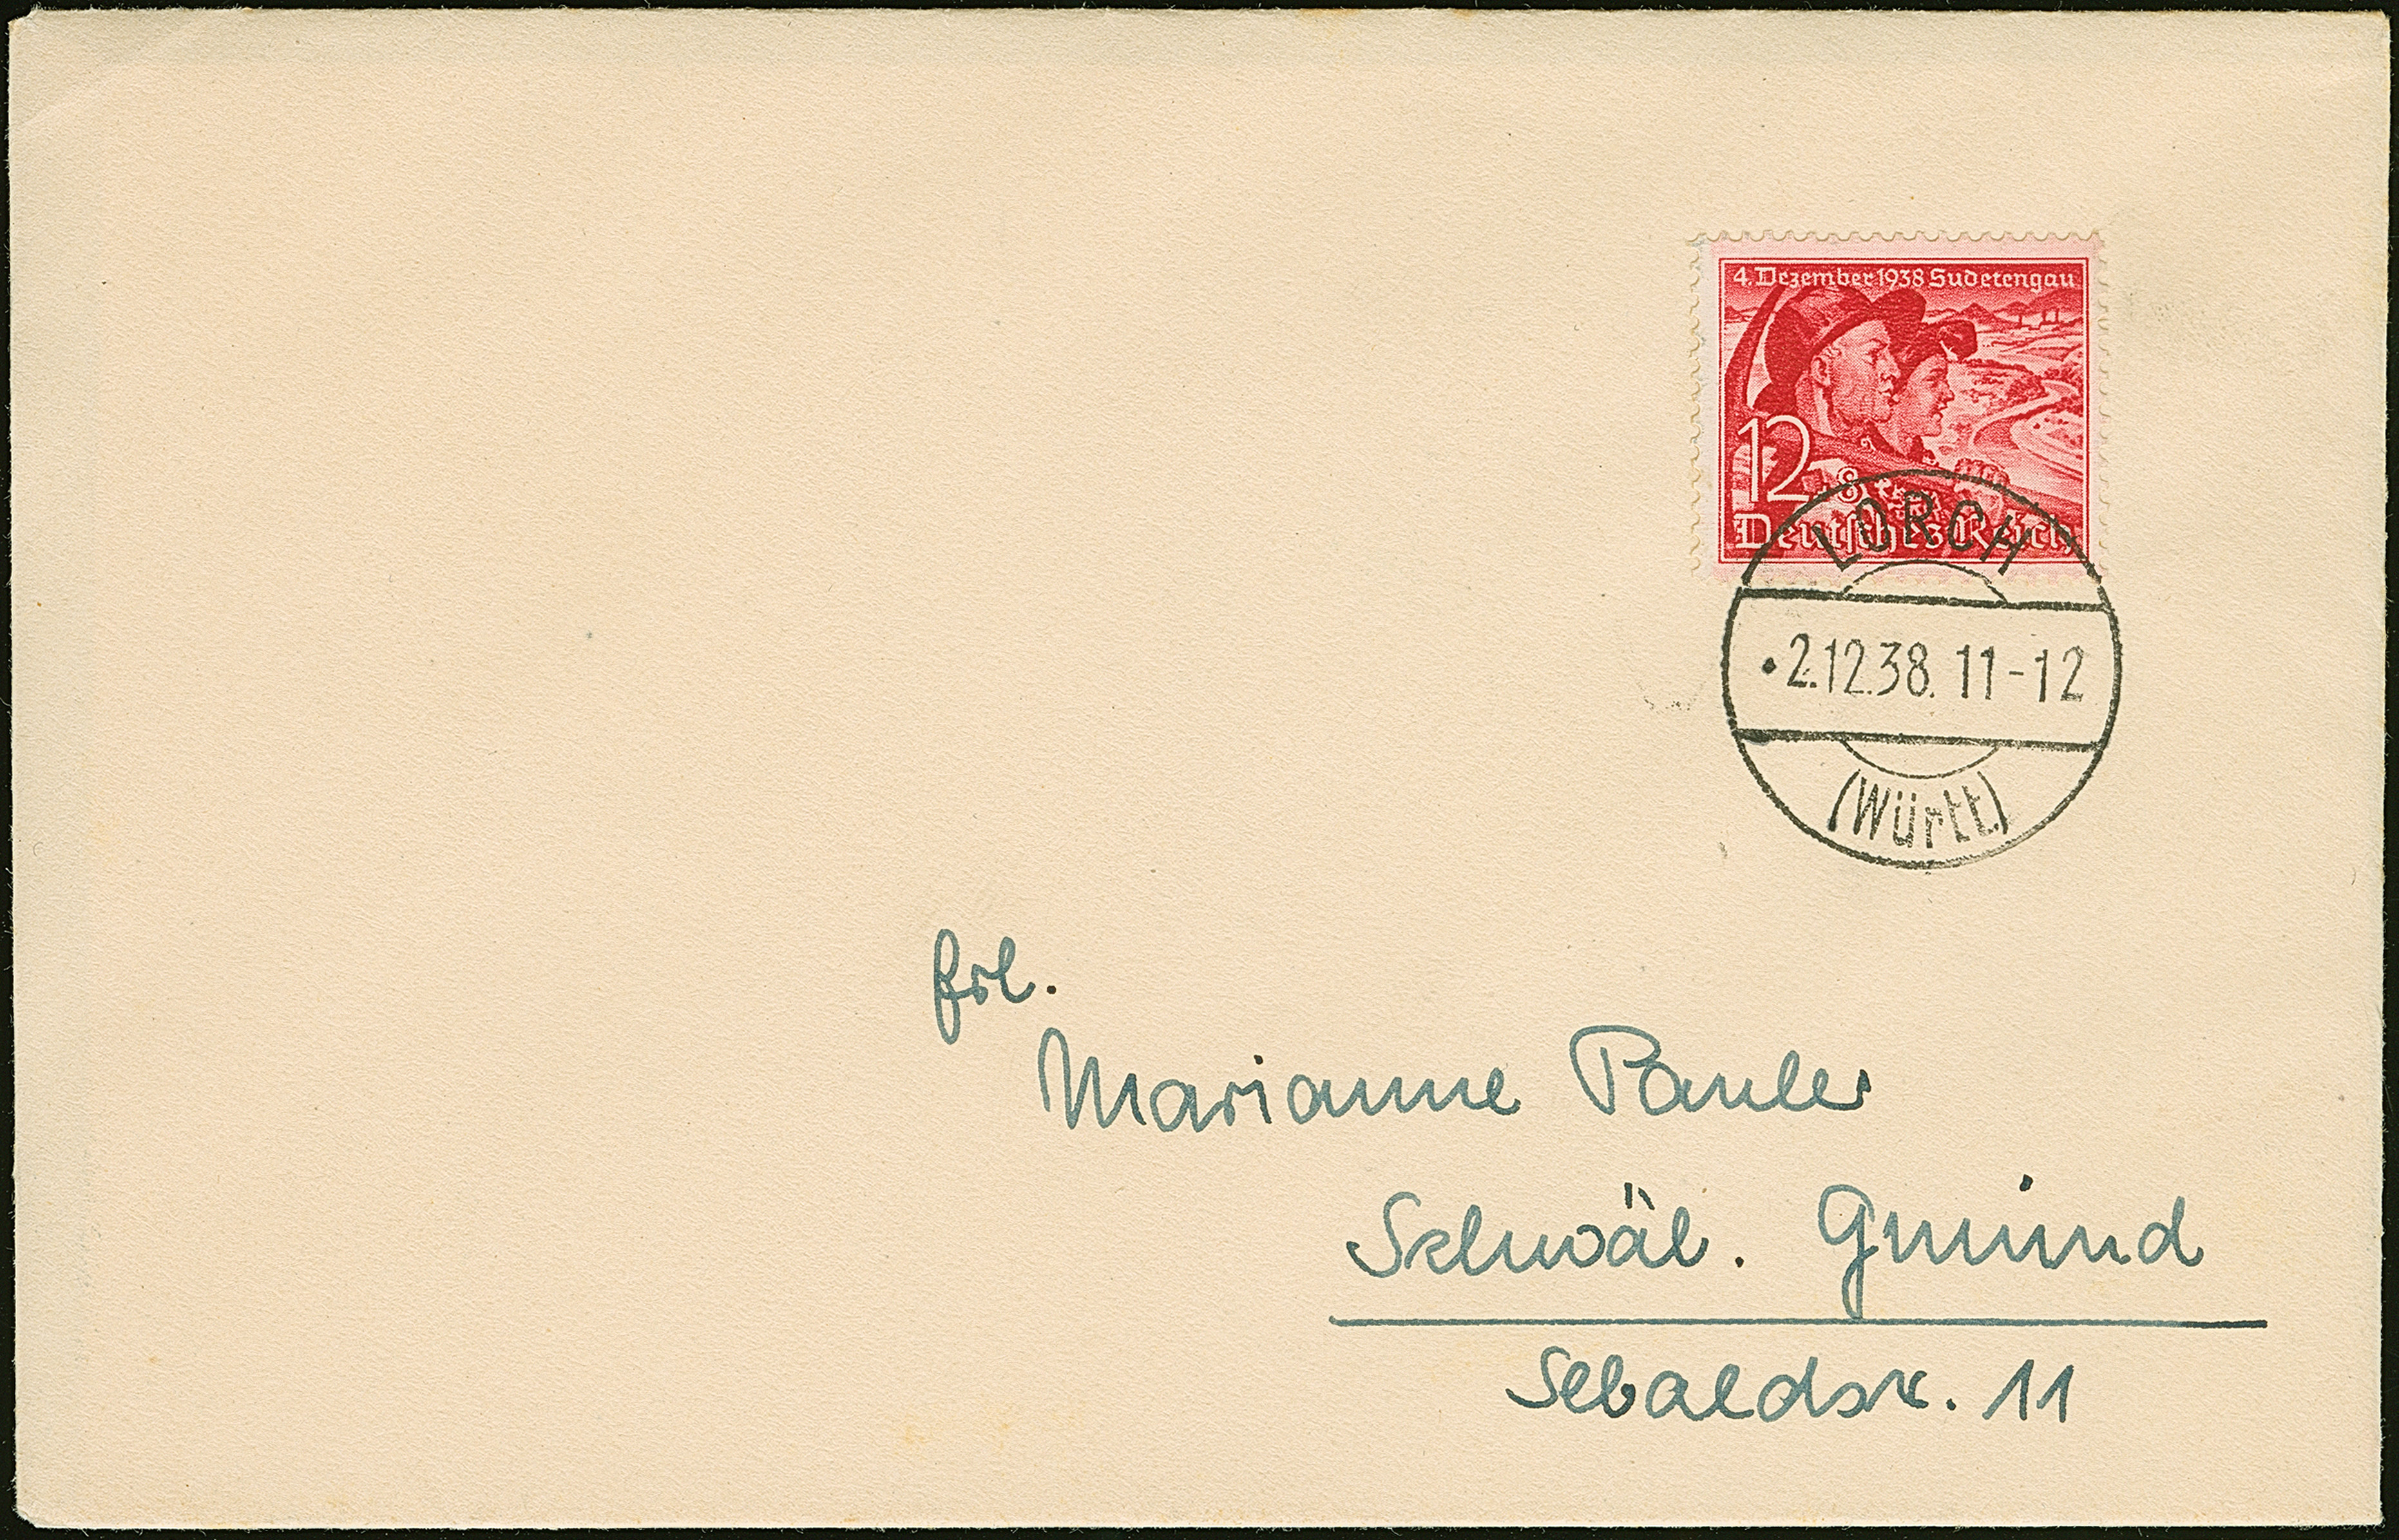 4. Dezember 1938 Sudetengau
12+8
Deutsches Reich
LORCH
•2.12.38. 11-12
(Württ.)
Frl.
Marianne Pauler
Schwäb. Gmünd
Sebaldstr. 11